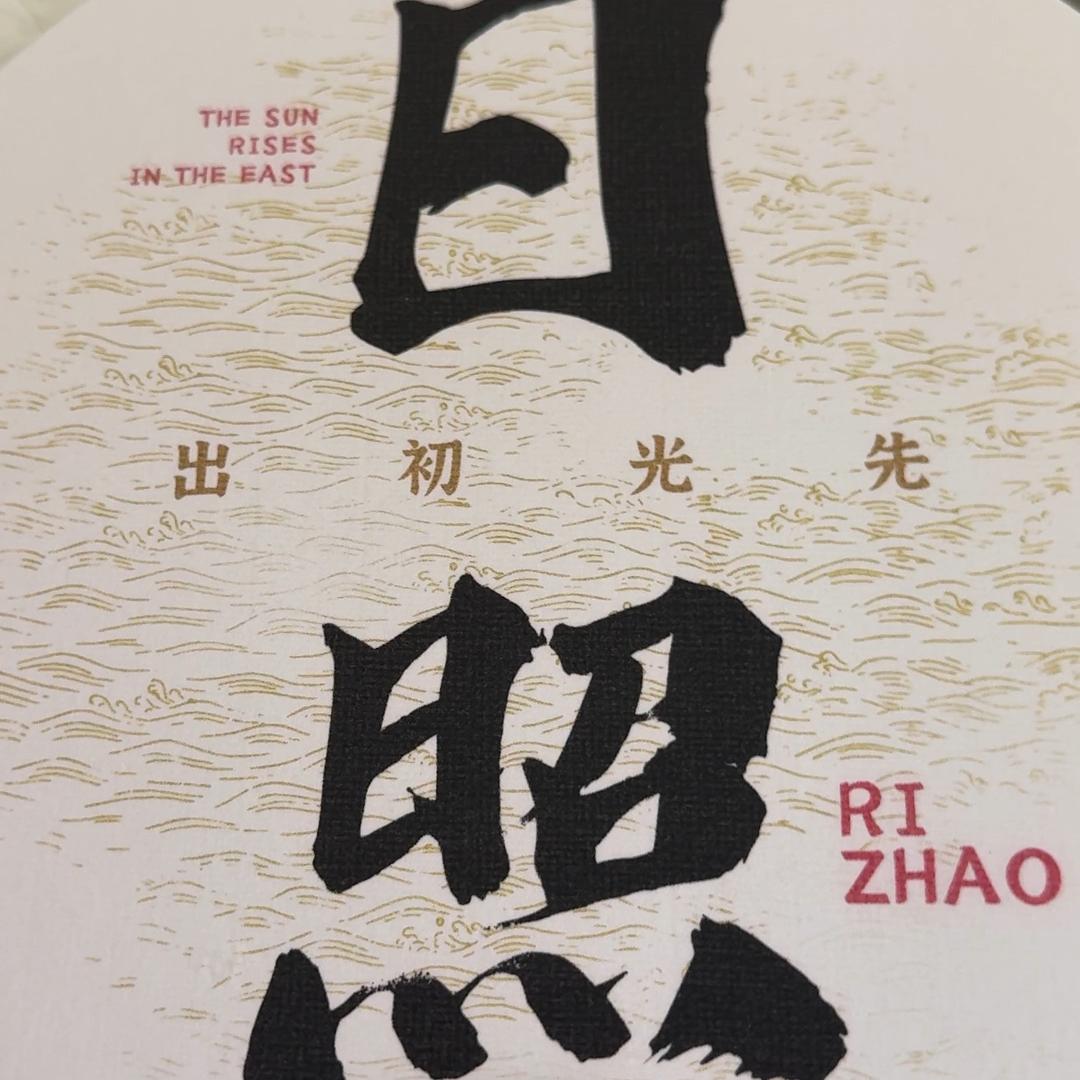 日
THE SUN
RISES
IN THE EAST
出 初 光 先
照
RI
ZHAO